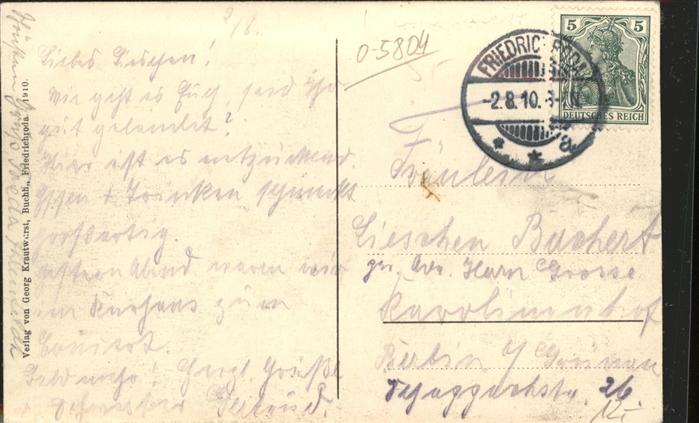 2/8.
Liebes Lieschen!
Wie geht es Euch, seid Ihr
gut gelandet?
Hier ist es entzückend
Essen + Trinken schmeckt
großartig.
Gestern Abend waren wir
im Kurhaus zum
Concert.
Bald mehr! Herzl. Grüße
Gertrud.
Verlag von Georg Krautwurst, Buchh., Friedrichroda. 1910.
0-5804
FRIEDRICHRODA
-2.8.10.
a
5 5
DEUTSCHES REICH
Fräulein
Lieschen Buchert
Herrn Grosse
Karolinenhof
Berlin / Grünau
26.
12.-